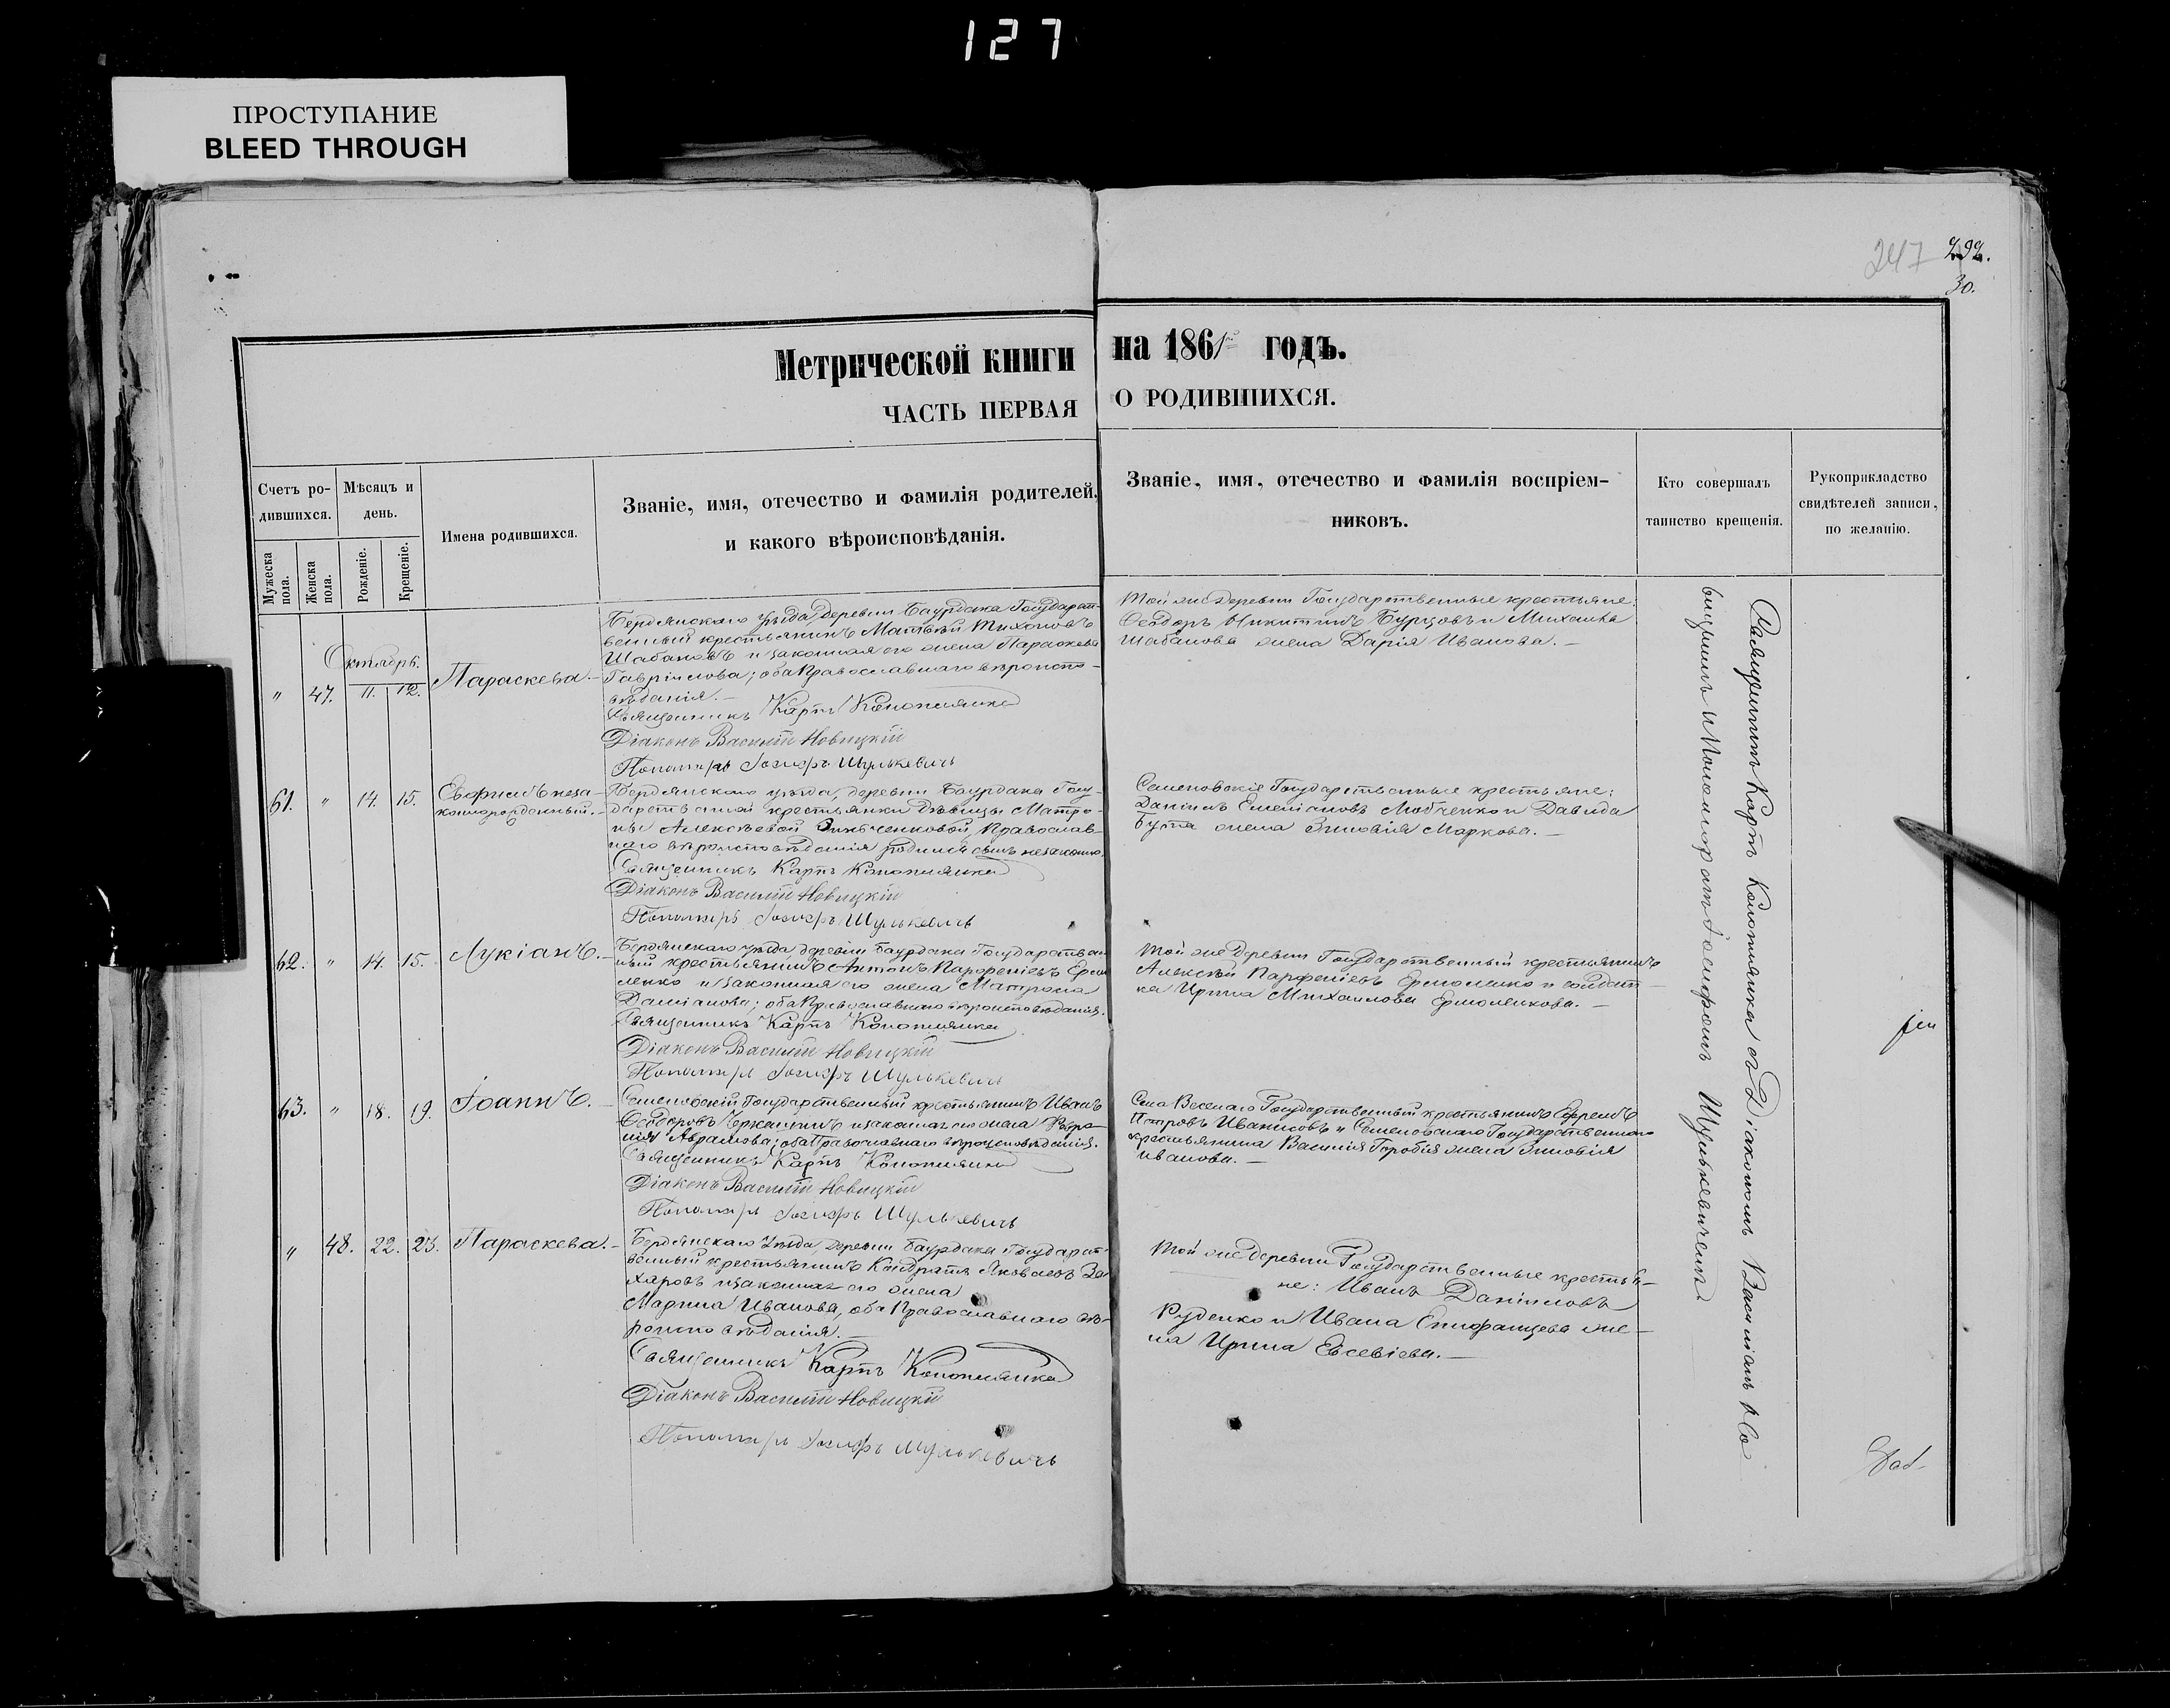 127
ПРОСТУПАНИЕ
BLEED THROUGH
247 292.
30.
Метрической книги на 1861 годъ.
ЧАСТЬ ПЕРВАЯ О РОДИВШИХСЯ.
Счетъ ро-
дившихся.
Мужеска пола.
Женска пола.
Мѣсяцъ и
день.
Рожденіе.
Крещеніе.
Имена родившихся.
Званіе, имя, отечество и фамилія родителей,
и какого вѣроисповѣданія.
Званіе, имя, отечество и фамилія воспріем-
никовъ.
Кто совершалъ
таинство крещенія.
Рукоприкладство
свидѣтелей записи,
по желанію.
Октябрь.
" 47. 11. 12. Параскева.—
Бердянскаго уѣзда, деревни Баурдака Государст-
венный крестьянинъ Матвѣй Тихоновъ
Шабановъ и законная его жена Параскева
Гавріилова; оба Православнаго вѣроиспо-
вѣданія.—
Священникъ Карпъ Коноплянка
Діаконъ Василій Новицкій
Пономарь Іосифъ Шулькевичъ
Той же деревни Государственные крестьяне:
Ѳеодоръ Никитинъ Бурцовъ и Михаила
Шабанова жена Дарія Иванова.—
61. " 14. 15. неза-
коннорожденный.—
Бердянскаго уѣзда, деревни Баурдака Госу-
дарственной крестьянки дѣвицы Матро-
ны Алексѣевой Православ-
наго вѣроисповѣданія родился сынъ незаконно.
Священникъ Карпъ Коноплянка
Діаконъ Василій Новицкій
Пономарь Іосифъ Шулькевичъ
Семеновскіе Государственные крестьяне:
Даніилъ Емеліановъ Любченко и Давида
Бута жена Зиновія Маркова.—
62. " 14. 15. Лукіанъ.—
Бердянскаго уѣзда, деревни Баурдака Государствен-
ный крестьянинъ Антонъ Парѳеніевъ Ермо-
ленко и законная его жена Матрона
Даміанова; оба Православнаго вѣроисповѣданія.
Священникъ Карпъ Коноплянка
Діаконъ Василій Новицкій
Пономарь Іосифъ Шулькевичъ
Той же деревни Государственный крестьянинъ
Алексѣй Парѳеніевъ Ермоленко и солдат-
ка Ирина Михаилова Ермоленкова.—
63. " 18. 19. Іоаннъ.—
Семеновскій Государственный крестьянинъ Иванъ
Ѳеодоровъ и законная его жена
Аврамова; оба Православнаго вѣроисповѣданія.
Священникъ Карпъ Коноплянка
Діаконъ Василій Новицкій
Пономарь Іосифъ Шулькевичъ
Села Веселаго Государственный крестьянинъ Ефремъ
Петровъ Иванисовъ и Семеновскаго Государственнаго
крестьянина Василія Горобця жена Зиновія
Иванова.—
" 48. 22. 23. Параскева.—
Бердянскаго уѣзда, деревни Баурдака Государст-
венный крестьянинъ Кондратъ Яковлевъ За-
харовъ и законная его жена
Марина Иванова, оба Православнаго вѣ-
роисповѣданія.—
Священникъ Карпъ Коноплянка
Діаконъ Василій Новицкій
Пономарь Іосифъ Шулькевичъ
Той же деревни Государственные крестья-
не: Иванъ Даніиловъ
Руденко и Ивана Епифанцева же-
на Ирина Евсевіева.—
Священникъ Карпъ Коноплянка съ Діакономъ Василіемъ Но-
вицкимъ и Пономаремъ Іосифомъ Шулькевичемъ